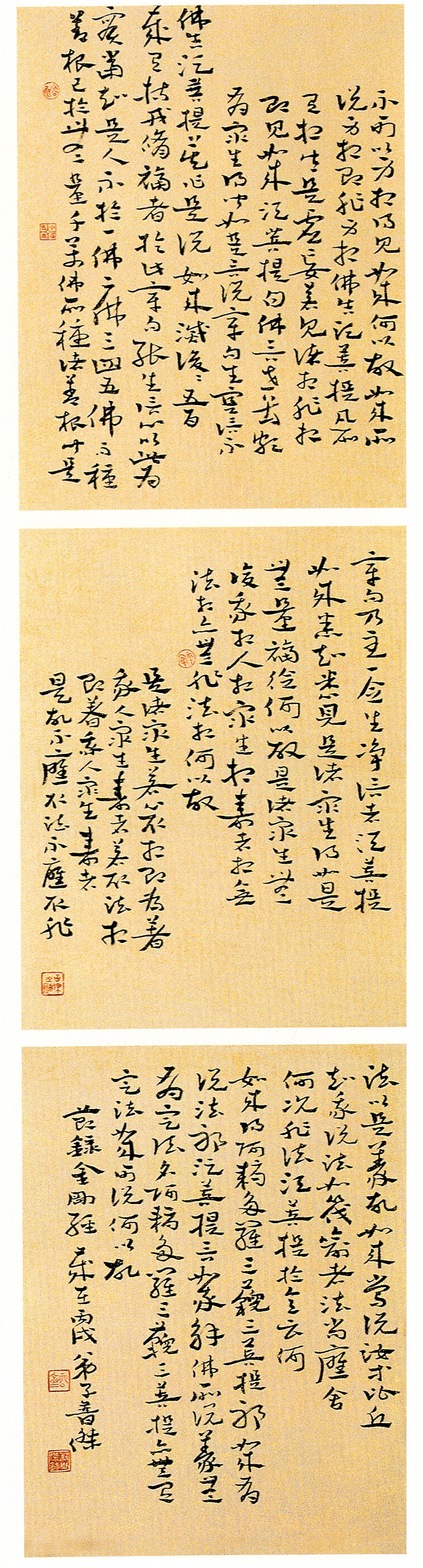 不可以身相得見如來何以故如來所
說身相即非身相佛告須菩提凡所
有相皆是虛妄若見諸相非相
即見如來須菩提白佛言世尊頗
有眾生得聞如是言說章句生實信不
佛告須菩提莫作是說如來滅後後五百
歲有持戒修福者於此章句能生信心以此為
實當知是人不於一佛二佛三四五佛而種
善根已於無量千萬佛所種諸善根聞是
章句乃至一念生淨信者須菩提
如來悉知悉見是諸眾生得如是
無量福德何以故是諸眾生無
復我相人相眾生相壽者相無
法相亦無非法相何以故
是諸眾生若心取相即為著
我人眾生壽者若取法相
即著我人眾生壽者
是故不應取法不應取非
法以是義故如來常說汝等比丘
知我說法如筏喻者法尚應舍
何況非法須菩提於意云何
如來得阿耨多羅三藐三菩提耶如來有
說法耶須菩提言如我解佛所說義無
有定法名阿耨多羅三藐三菩提亦無有
定法如來可說何以故
節錄金剛經 歲在丙戌 弟子普傑